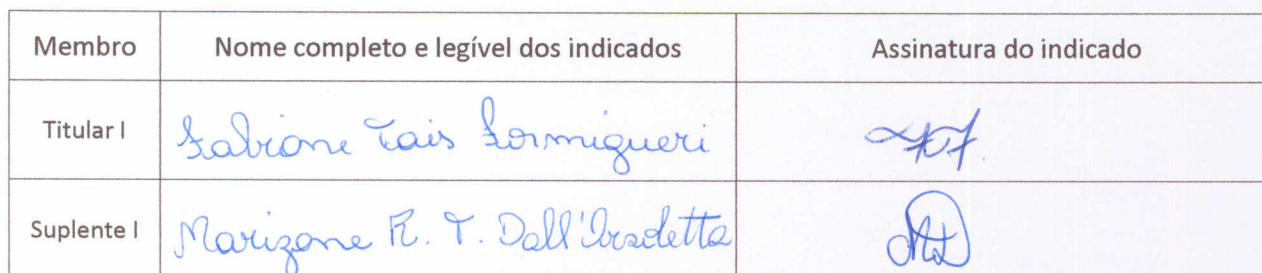 Membro Nome completo e legível dos indicados Assinatura do indicado
Titular I Fabiane Tais Formigueri
Suplente I Marizane R. T. Dall'Orsoletta